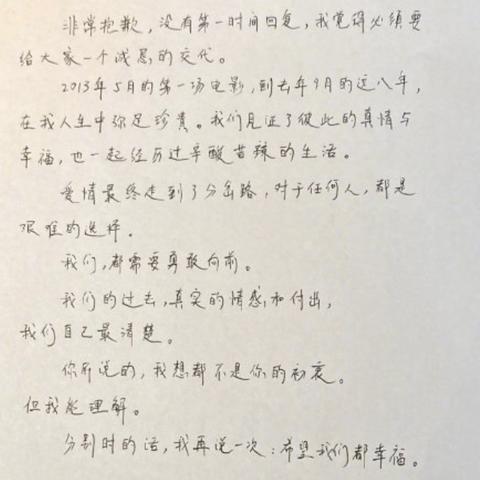 非常抱歉，没有第一时间回复，我觉得必须要
给大家一个诚恳的交代。
2013年5月的第一场电影，到去年9月的近八年，
在我人生中弥足珍贵。我们见证了彼此的真情与
幸福，也一起经历过辛酸苦辣的生活。
爱情最终走到了分岔路，对于任何人，都是
艰难的选择。
我们，都需要勇敢向前。
我们的过去，真实的情感和付出，
我们自己最清楚。
你所说的，我想都不是你的初衷。
但我能理解。
分别时的话，我再说一次：希望我们都幸福。